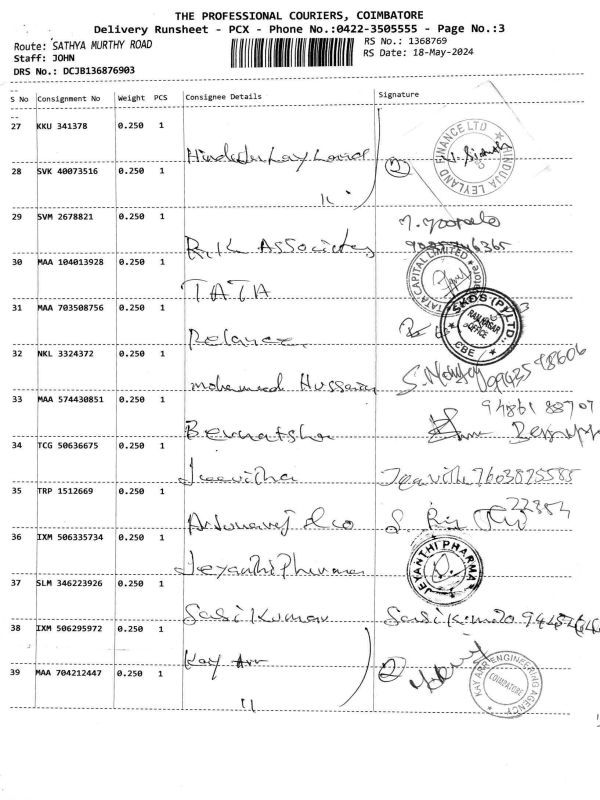 THE PROFESSIONAL COURIERS, COIMBATORE
Delivery Runsheet - PCX - Phone No.:0422-3505555 - Page No.:3
Route: SATHYA MURTHY ROAD
RS No.: 1368769
Staff: JOHN
RS Date: 18-May-2024
DRS No.: DCJB136876903
S No Consignment No Weight PCS Consignee Details Signature
27 KKU 341378 0.250 1
HINDUJA LEYLAND FINANCE LTD
28 SVK 40073516 0.250 1
2
"
29 SVM 2678821 0.250 1
R.K. Associates
30 MAA 104013928 0.250 1
TATA
TATA CAPITAL LIMITED
31 MAA 703508756 0.250 1
Relance
SKDS (P) LTD.
OFFICE
CBE
32 NKL 3324372 0.250 1
mohameed Hussain
33 MAA 574430851 0.250 1
94861 88707
34 TCG 50636675 0.250 1
Jeevitha
Jeevitha 7603825585
35 TRP 1512669 0.250 1
36 IXM 506335734 0.250 1
Jeyanthi Pharma
JEYANTHI PHARMA
37 SLM 346223926 0.250 1
Sasi Kumar
38 IXM 506295972 0.250 1
Kay Arr
2
KAY ARR ENGINEERING AGENCY
COIMBATORE
39 MAA 704212447 0.250 1
"